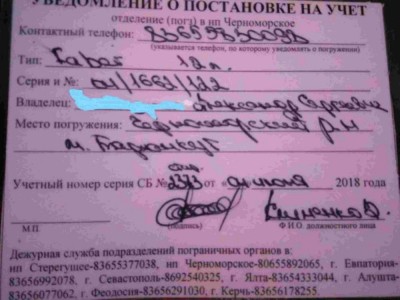 УВЕДОМЛЕНИЕ О ПОСТАНОВКЕ НА УЧЕТ
отделение (погз) в нп Черноморское
Контактный телефон:
(указывается телефон, по которому уведомлять о погружении)
Тип:
Серия и №:
Владелец: Александр Сергеевич
Место погружения: Черноморский р-н
Учетный номер серия СБ № от 2018 года
(подпись)
Ф.И.О. должностного лица
МП
Дежурная служба подразделений пограничных органов в:
нп Стерегущее-83655377038, нп Черноморское-80655892065, г. Евпатория-
83656992078, г. Севастополь-8692540325, г. Ялта-83654333044, г. Алушта-
8365077062, г. Феодосия-83656291030, г. Керчь-83656178255.